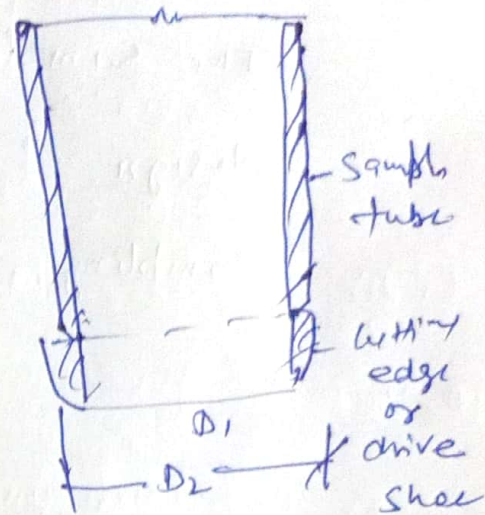 Sample
tube
Cutting
edge
or
drive
shoe
D1
D2